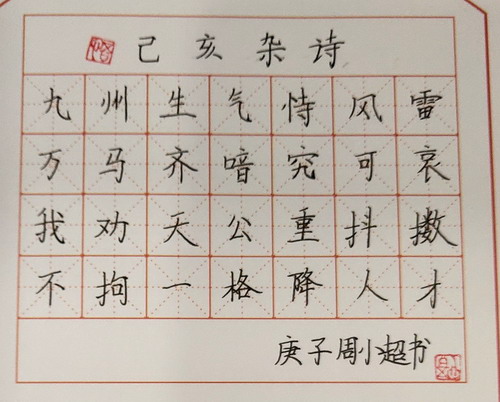 己亥杂诗
九州生气恃风雷
万马齐喑究可哀
我劝天公重抖擞
不拘一格降人才
庚子周小超书